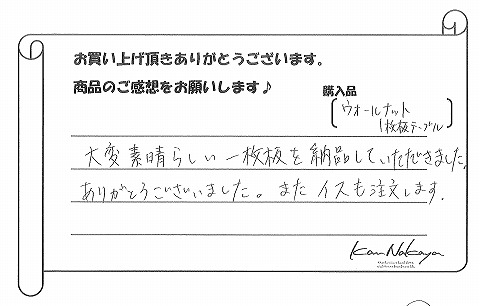 お買い上げ頂きありがとうございます。
商品のご感想をお願いします♪
購入品
ウォールナット
1枚板テーブル
大変素晴らしい一枚板を納品していただきました。
ありがとうございました。また イスも注文します。
Kan Nakaya